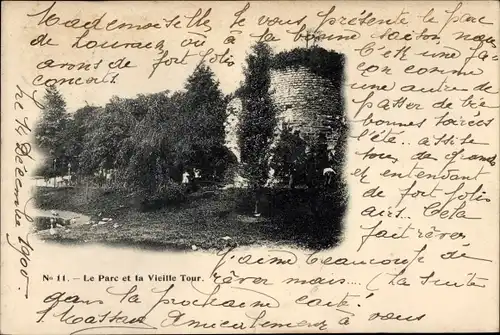 Mademoiselle, Je vous présente le parc
de Louvain où à la bonne saison nous
avons de fort jolis
concerts
C'est une fa-
çon comme
une autre de
passer de bien
bonnes soirées
l'été.. assise
sous de grands
et entendant
de fort jolis
airs.. Cela
fait rêver.
J'aime beaucoup de
rêver mais.... (la suite
dans la prochaine carte)
Amicalement à vous
le 4 Décembre 1900.
No 11. - Le Parc et la Vieille Tour.